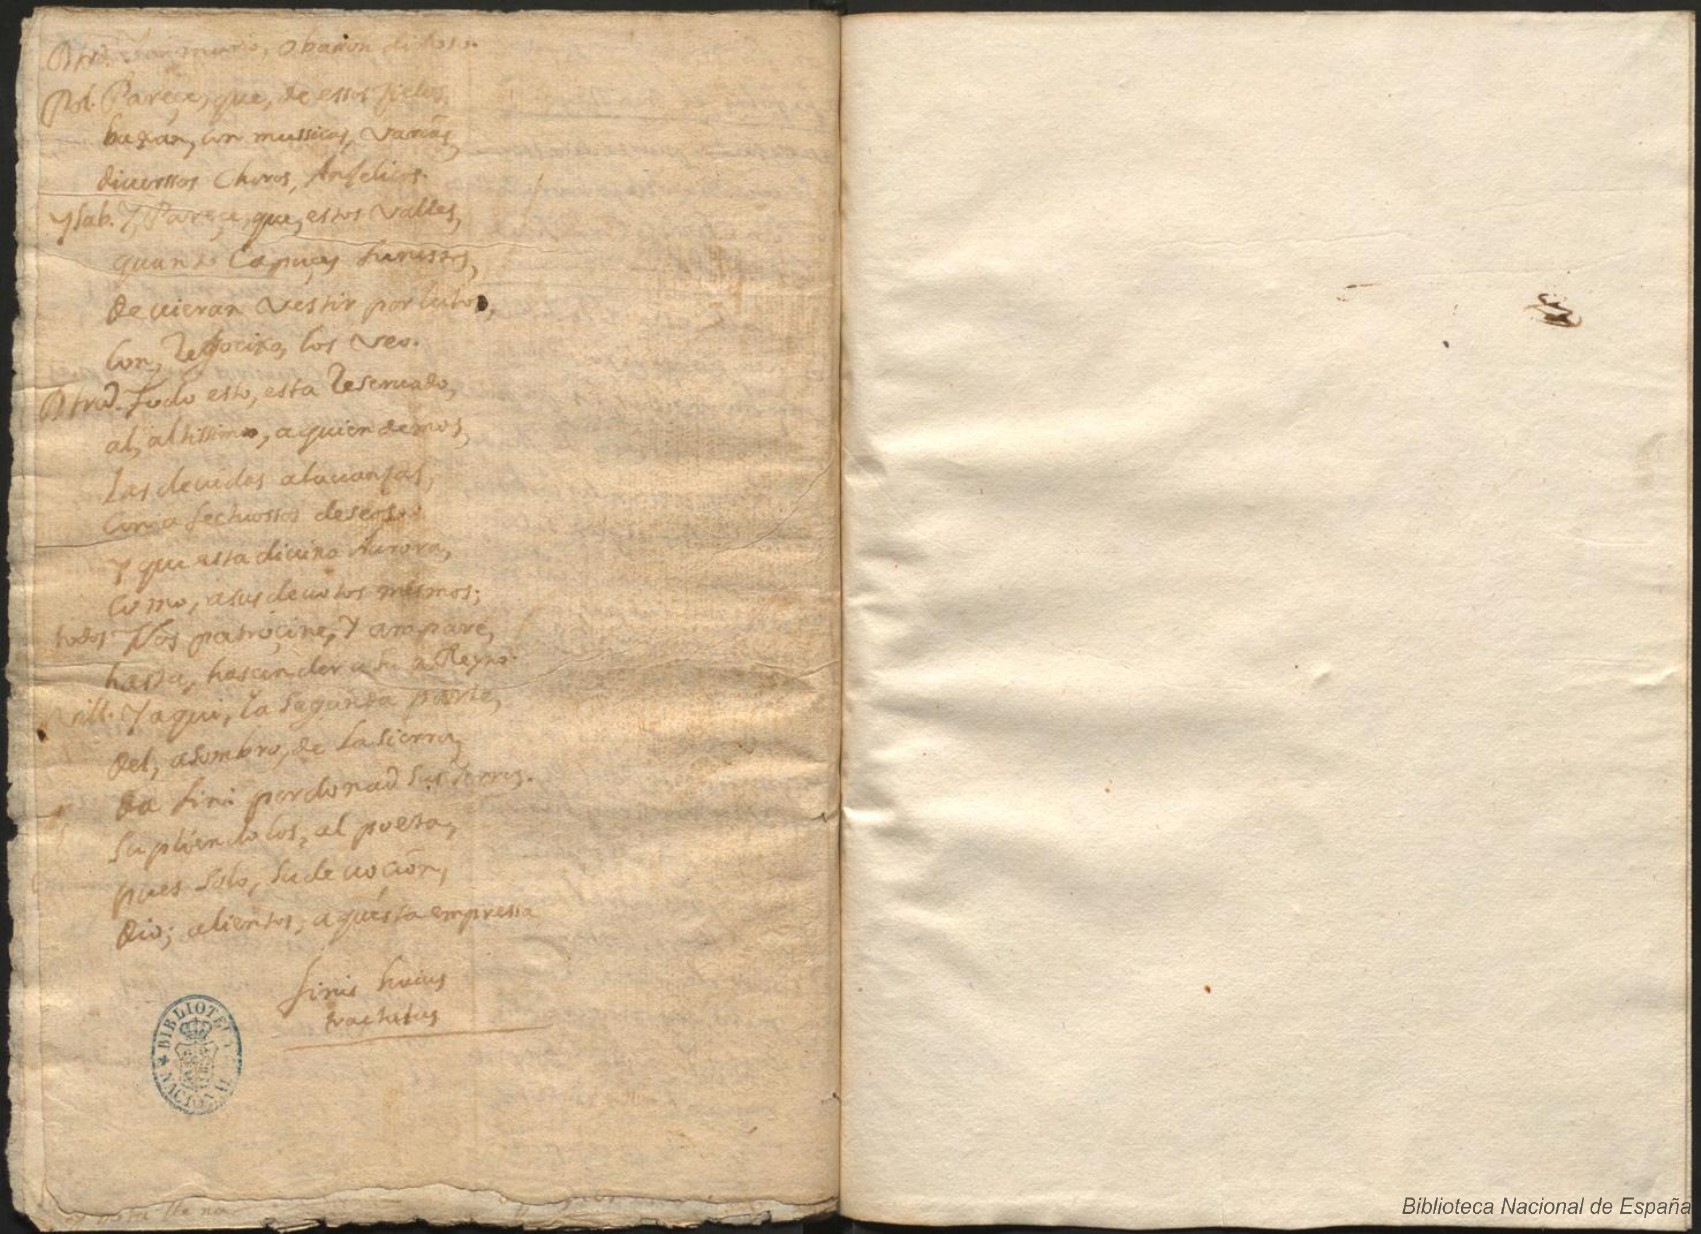 murio, o baron dichoso.
Pol. Pareçe, que, de essos çielos,
baxan, con mussicas, varias,
diuerssos Choros, Angelicos.
ysab. Y, Pareçe, que, estos valles,
quando Capuçes funestos,
deuieran vestir por lutos,
Con, Regocixo, los veo.
Todo esto, esta Reseruado,
al, altissimo, a quien demos,
Las deuidas alauanças,
Con afectuossos deseos.
Y que esta diuina Aurora,
Como, a sus deuotos mismos;
todos Nos patroçine, Y ampare,
hasta, hascender a su Reyno.
Y aqui, la segunda parte,
del, asombro, de La sierra,
da fin: perdonad sus yerros.
supliendolos, al poeta,
pues solo, su deuoçion,
dio; alientos; a questa empressa
finis huius
tractatus
BIBLIOTECA NACIONAL
Biblioteca Nacional de España